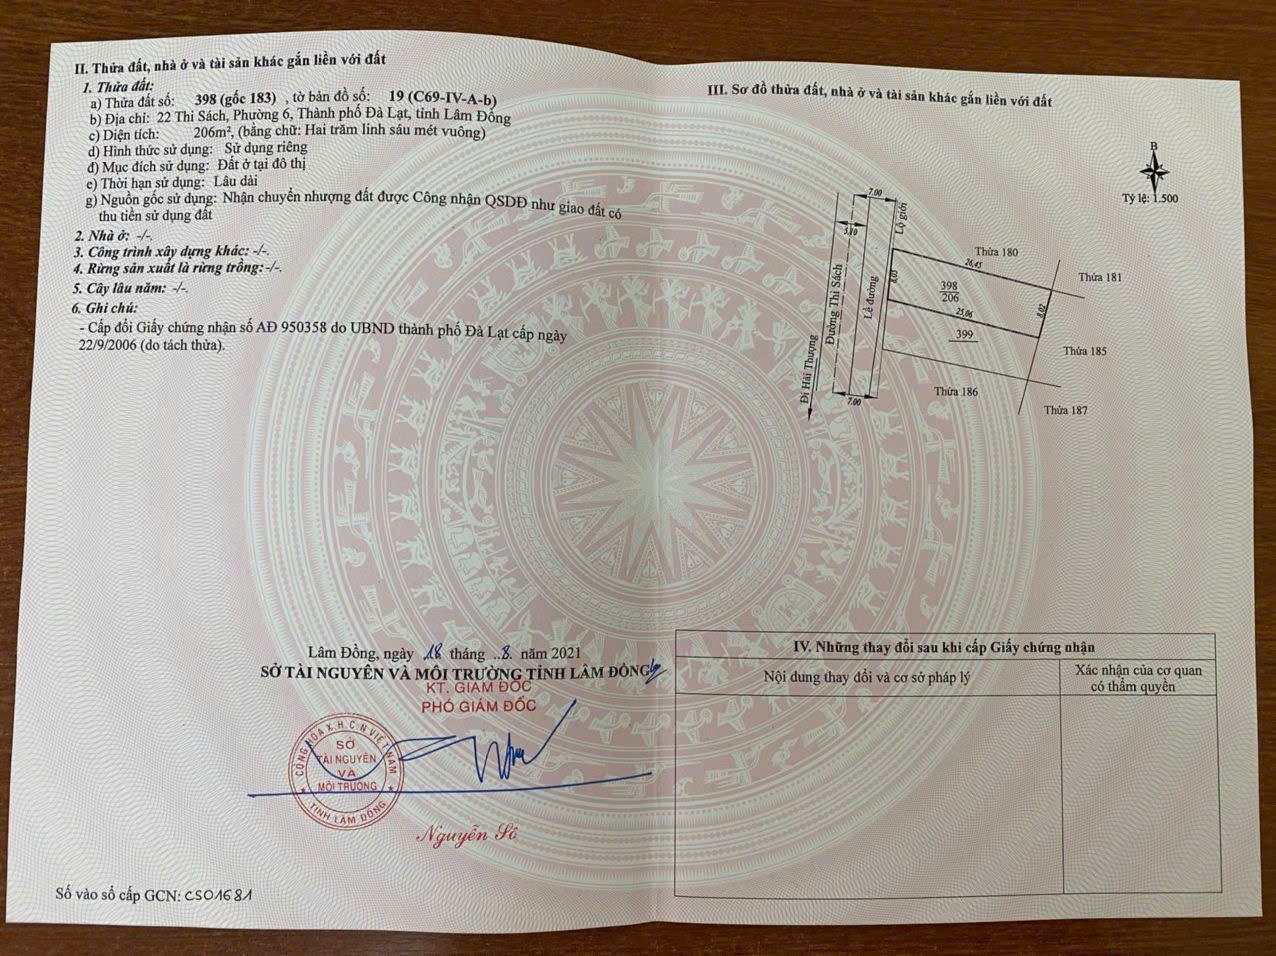 II. Thửa đất, nhà ở và tài sản khác gắn liền với đất
1. Thửa đất:
a) Thửa đất số: 398 (gốc 183) , tờ bản đồ số: 19 (C69-IV-A-b)
b) Địa chỉ: 22 Thi Sách, Phường 6, Thành phố Đà Lạt, tỉnh Lâm Đồng
c) Diện tích: 206m², (bằng chữ: Hai trăm linh sáu mét vuông)
d) Hình thức sử dụng: Sử dụng riêng
đ) Mục đích sử dụng: Đất ở tại đô thị
e) Thời hạn sử dụng: Lâu dài
g) Nguồn gốc sử dụng: Nhận chuyển nhượng đất được Công nhận QSDĐ như giao đất có
thu tiền sử dụng đất
2. Nhà ở: -/-.
3. Công trình xây dựng khác: -/-.
4. Rừng sản xuất là rừng trồng:-/-.
5. Cây lâu năm: -/-.
6. Ghi chú:
- Cấp đổi Giấy chứng nhận số AĐ 950358 do UBND thành phố Đà Lạt cấp ngày
22/9/2006 (do tách thửa).
Lâm Đồng, ngày 18 tháng ..8. năm 2021
SỞ TÀI NGUYÊN VÀ MÔI TRƯỜNG TỈNH LÂM ĐỒNG
KT. GIÁM ĐỐC
PHÓ GIÁM ĐỐC
CỘNG HÒA X.H.C.N VIỆT NAM
SỞ
TÀI NGUYÊN
VÀ
MÔI TRƯỜNG
TỈNH LÂM ĐỒNG
Nguyễn Sô
Số vào sổ cấp GCN: CS01681
III. Sơ đồ thửa đất, nhà ở và tài sản khác gắn liền với đất
B
Tỷ lệ: 1.500
7.00
Lộ giới
Thửa 180
26,45
Thửa 181
Đường Thi Sách
Lề đường
398
206
8,02
25,06
399
Thửa 185
Đi Hải Thượng
Thửa 186
7.00
Thửa 187
IV. Những thay đổi sau khi cấp Giấy chứng nhận
Nội dung thay đổi và cơ sở pháp lý
Xác nhận của cơ quan
có thẩm quyền